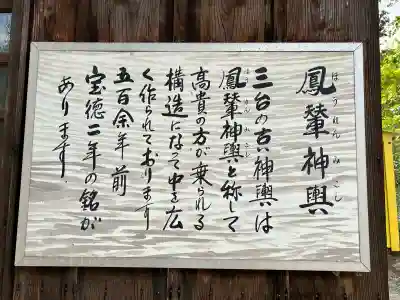 鳳輦神輿
ほうれんみこし
三台の古い神輿は
鳳輦神輿と称して
ほうれんみこし
高貴の方が乗られる
構造になって中を広
く作られております
五百余年前
宝徳二年の銘が
あります。